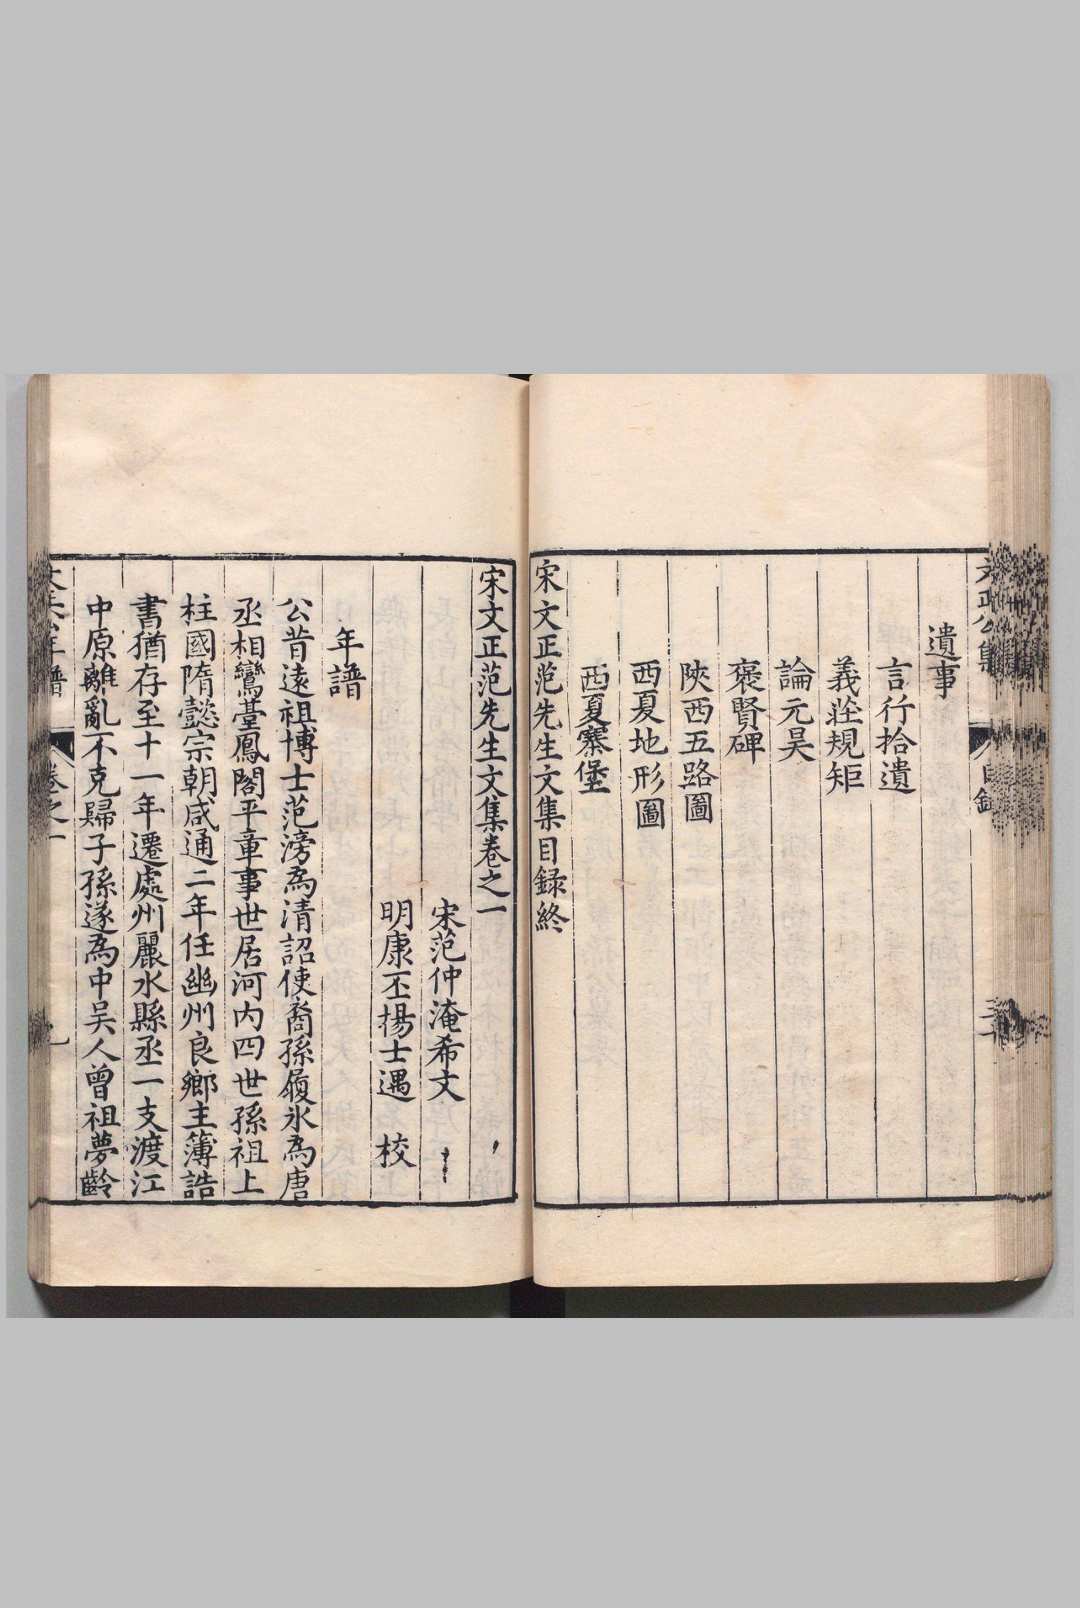 文正公集 目錄
遺事
言行拾遺
義莊規矩
論元昊
褒賢碑
陝西五路圖
西夏地形圖
西夏寨堡
宋文正范先生文集目錄終
宋文正范先生文集卷之一
宋范仲淹希文
明康丕揚士遇 校
年譜
公昔遠祖博士范滂為清詔使裔孫履氷為唐
丞相鸞臺鳳閣平章事世居河内四世孫祖上
柱國隋懿宗朝咸通二年任幽州良鄉主簿誥
書猶存至十一年遷處州麗水縣丞一支渡江
中原離亂不克歸子孫遂為中吳人曾祖夢齡
文正公年譜 卷之一